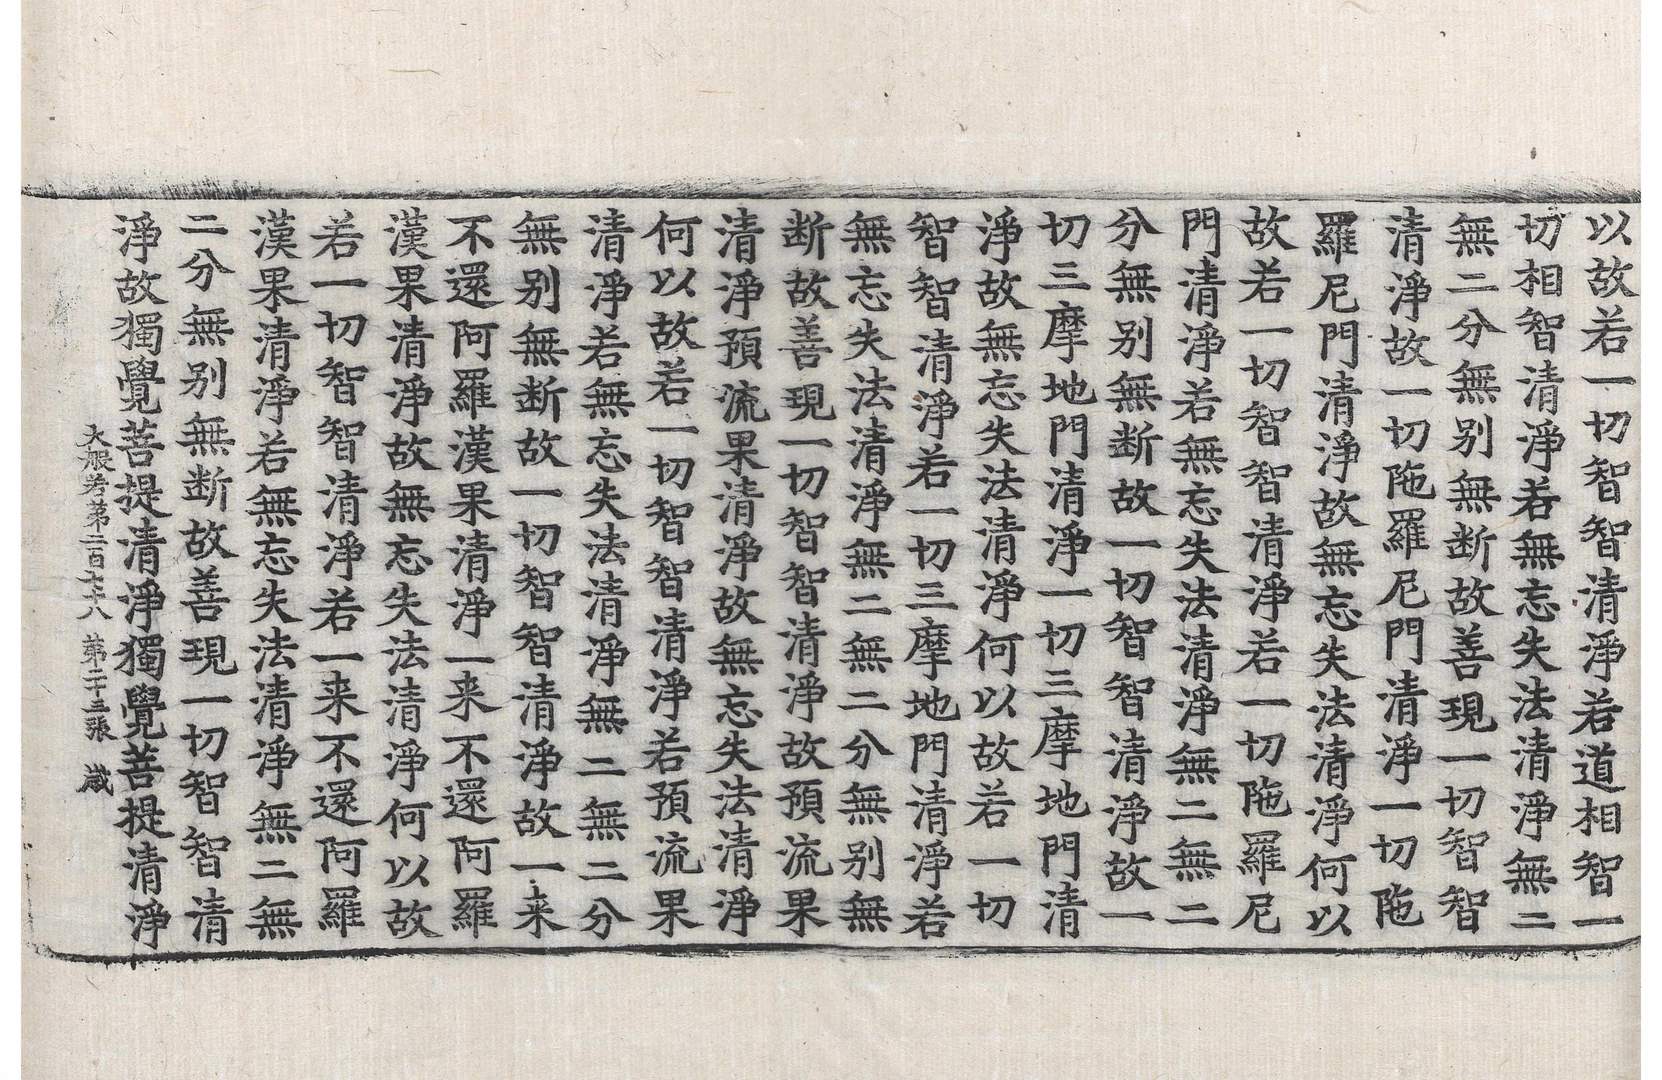 以故若一切智智清淨若道相智一
切相智清淨若無忘失法清淨無二
無二分無别無断故善現一切智智
清淨故一切陁羅尼門清淨一切陁
羅尼門清淨故無忘失法清淨何以
故若一切智智清淨若一切陁羅尼
門清淨若無忘失法清淨無二無二
分無别無断故一切智智清淨故一
切三摩地門清淨一切三摩地門清
淨故無忘失法清淨何以故若一切
智智清淨若一切三摩地門清淨若
無忘失法清淨無二無二分無别無
断故善現一切智智清淨故預流果
清淨預流果清淨故無忘失法清淨
何以故若一切智智清淨若預流果
清淨若無忘失法清淨無二無二分
無别無断故一切智智清淨故一来
不還阿羅漢果清淨一来不還阿羅
漢果清淨故無忘失法清淨何以故
若一切智智清淨若一来不還阿羅
漢果清淨若無忘失法清淨無二無
二分無别無断故善現一切智智清
淨故獨覺菩提清淨獨覺菩提清淨
大般若第二百七十八 第二十三張 歲